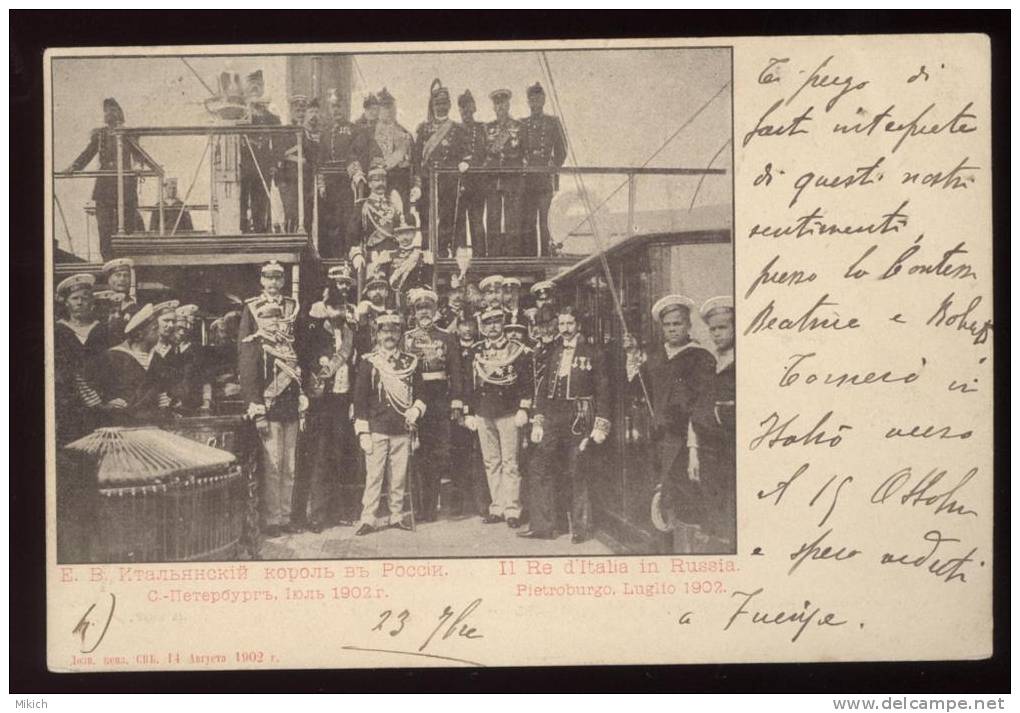 Ti prego di
farti interprete
di questi nostri
sentimenti,
presso la Contessa
Beatrice e Robert
Tornerò in
Italia verso
il 15 Ottobre
e spero vederti
a Firenze.
Е. В. Итальянскій король въ Россіи.
С.-Петербургъ, Іюль 1902 г.
Il Re d'Italia in Russia.
Pietroburgo, Luglio 1902.
4)
23 7bre
Дозв. ценз. СПБ. 14 Августа 1902 г.
Mikich
www.delcampe.net